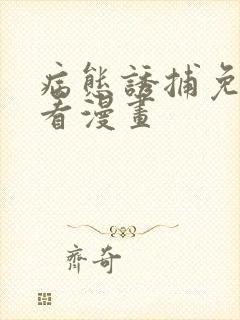 病態誘捕免
看漫畫
齊奇